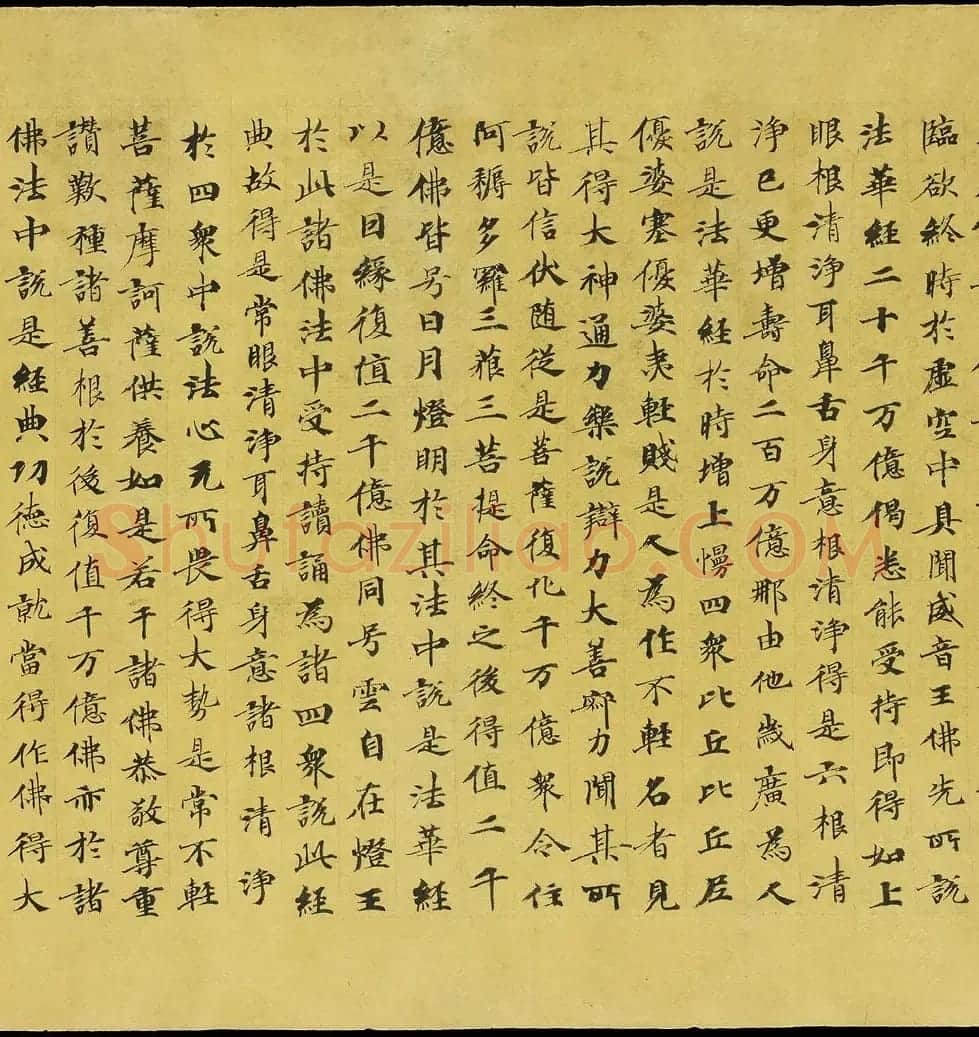 臨欲終時於虛空中具聞威音王佛先所說
法華經二十千万億偈悉能受持即得如上
眼根清淨耳鼻舌身意根清淨得是六根清
淨已更增壽命二百万億那由他歲廣為人
說是法華經於時增上慢四眾比丘比丘尼
優婆塞優婆夷輕賤是人為作不輕名者見
其得大神通力樂說辯力大善寂力聞其所
說皆信伏随從是菩薩復化千万億眾令住
阿耨多羅三藐三菩提命終之後得值二千
億佛皆号日月燈明於其法中說是法華經
以是因緣復值二千億佛同号雲自在燈王
於此諸佛法中受持讀誦為諸四眾說此經
典故得是常眼清淨耳鼻舌身意諸根清淨
於四眾中說法心无所畏得大勢是常不輕
菩薩摩訶薩供養如是若干諸佛恭敬尊重
讚歎種諸善根於後復值千万億佛亦於諸
佛法中說是經典功德成就當得作佛得大
Shufaziliao.COM